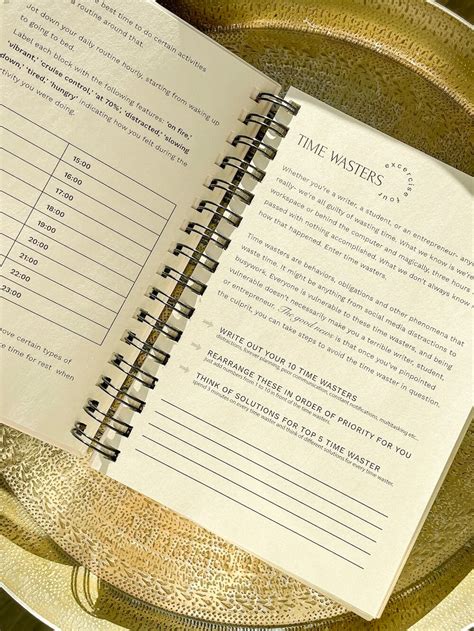 best time to do certain activities
routine around that.
Jot down your daily routine hourly, starting from waking up
to going to bed.
Label each block with the following features: 'on fire,'
'vibrant,' 'cruise control,' 'at 70%,' 'distracted,' 'slowing
down,' 'tired,' 'hungry' indicating how you felt during the
activity you were doing.
15:00
16:00
17:00
18:00
19:00
20:00
21:00
22:00
23:00
above certain types of
time for rest when
TIME WASTERS
excercise
Whether you're a writer, a student, or an entrepreneur-
really- we're all guilty of wasting time. What we know is we're
workspace or behind the computer and magically, three hours
passed with nothing accomplished. What we don't always know
how that happened. Enter time wasters.
Time wasters are behaviors, obligations and other phenomena that
waste time. It might be anything from social media distractions to
busywork. Everyone is vulnerable to these time wasters, and being
vulnerable doesn't necessarily make you a terrible writer, student,
or entrepreneur. The good news is that once you've pinpointed
the culprit, you can take steps to avoid the time waster in question.
WRITE OUT YOUR 10 TIME WASTERS
distractions, forever planning, poor communication, constant notification, multitasking etc..
REARRANGE THESE IN ORDER OF PRIORITY FOR YOU
just add numbers from 1 to 10 in front of the time wasters.
THINK OF SOLUTIONS FOR TOP 5 TIME WASTER
spend 3 minutes on every time waster and think of different solutions for every time waster.